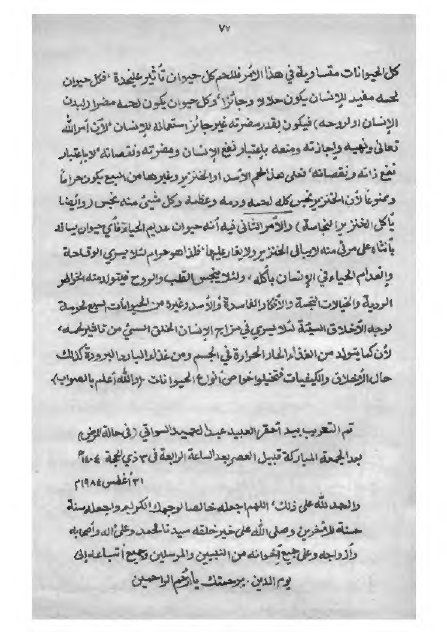 ٧٧
كل الحيوانات متساوية في هذا الأمر فللحم كل حيوان تأثير عليحدة، فكل حيوان
لحمه مفيد للإنسان يكون حلالا وجائزا، وكل حيوان يكون لحمه مضرا لبدن
الإنسان (و لروحه) فيكون بقدر مضرته غير جائز استعماله للإنسان، لأن أمر الله
تعالى ونهيه وإجازته ومنعه بإعتبار نفع الإنسان ومضرته ونقصانه، لا بإعتبار
نفع ذاته ونقصانه، فعلى هذا لحم الأسد أو الخنزير وغيرها من السبع يكون حراماً
وممنوعاً لأن الخنزير نجس كله لحمه ودمه وعظمه وكل شيئ منه نجس (وأيضا
يأكل الخنزير النجاسة) والأمر الثاني فيه أنه حيوان عديم الحياء فأي حيوان
بأنثاه على مرئى منه لا يبالي الخنزير ولا يغار عليها، فلذا هو حرام لئلا يسري الوقاحة
وإنعدام الحياء في الإنسان بأكله، ولئلا يتنجس القلب والروح فيتولد منه الخواطر
الردية والخيالات النجسة والأفكار الفاسدة والأسد وغيره من الحيوانات السبع لحرمة
لوجه الأخلاق السيئة لئلا يسري في مزاج الإنسان الخلق السيئ من تاثير لحمه،
لأن كما يتولد من الغذاء الحار الحرارة في الجسم ومن غذاء البارد البرودة كذلك
حال الأخلاق والكيفيات فتخيلوا خواص أنواع الحيوانات (والله أعلم بالصواب).
تم التعريب بيد أحقر العبيد عبد الحميد السواتي (في حالة المرض)
بعد الجمعة المباركة قبيل العصر بعد الساعة الرابعة في ٣ ذي الحجة ١٤٠٤ ه
٣١ أغسطس ١٩٨٤ م
والحمد لله على ذلك، اللهم اجعله خالصا لوجهك الكريم واجعله سنة
حسنة للآخرين وصلى الله على خير خلقه سيدنا محمد وعلى آله وأصحابه
وأزواجه وعلى جميع إخوانه من النبيين والمرسلين وجميع أتباعه إلى
يوم الدين. برحمتك يا أرحم الراحمين